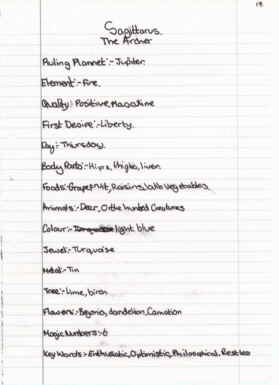 19
Sagittarus.
The Archer
Ruling Plannet:- Jupiter.
Element:- Fire.
Quality:- Positive, Masculine
First Desire:- Liberty.
Day:- Thursday.
Body Parts:- Hips, thighs, liver.
Foods:- Grapefruit, Raisins, bulb vegetables,
Animals:- Deer, Other hunted Creatures
Colour:- light blue
Jewel:- Turquoise
Metal:- Tin
Tree:- Lime, birch
Flowers:- Begonia, dandelion, Carnation
Magic Numbers:- 6
Key Words:- Enthusiastic, Optimistic, Philosophical, Restless